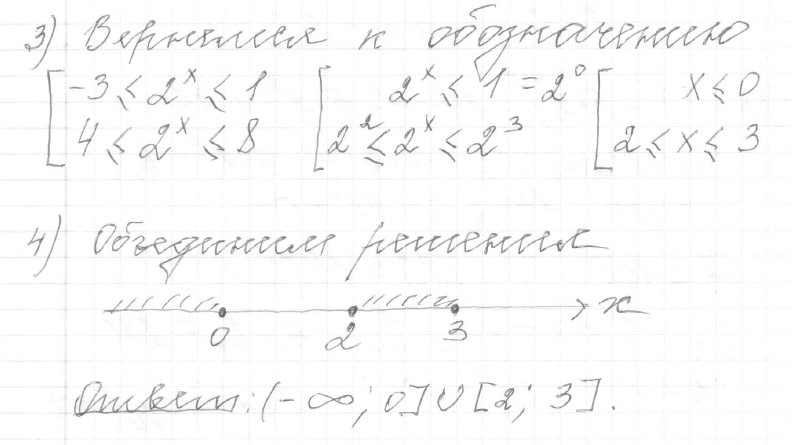 3) Вернемся к обозначению
[ -3 ≤ 2^x ≤ 1 [ 2^x ≤ 1 = 2^0 [ x ≤ 0
4 ≤ 2^x ≤ 8 2^2 ≤ 2^x ≤ 2^3 2 ≤ x ≤ 3
4) Объединим решения
x
0 2 3
Ответ: (-∞; 0] ∪ [2; 3].